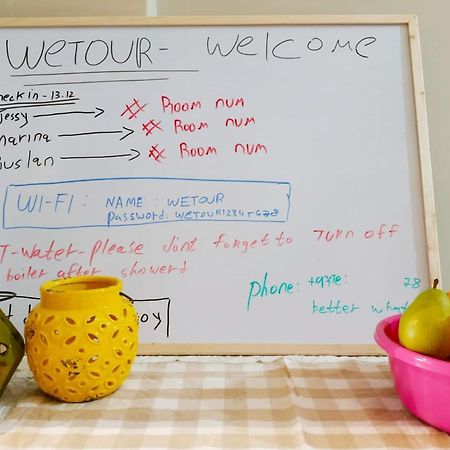 WETOUR - welcome
heck in - 13.12
jessy → # Room num
marina → # Room num
Ruslan → # Room num
WI-FI : NAME : WETOUR
password: WETOUR12345678
T-water-please dont forget to Turn off
boiler after showerd
phone: 78
better what
oy